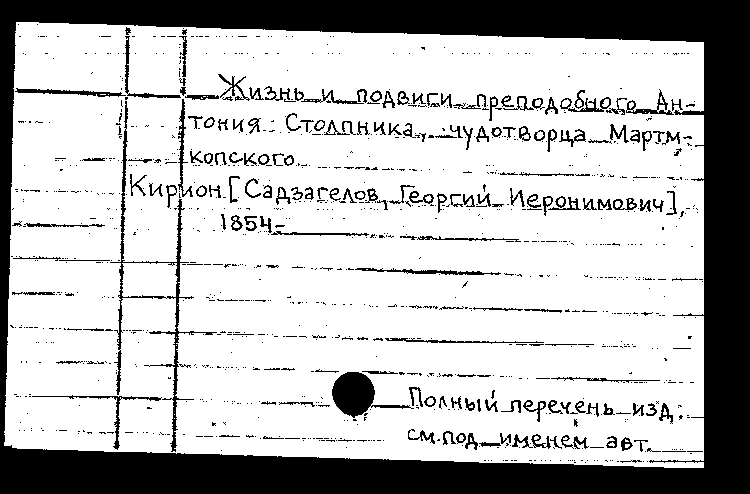 Жизнь и подвиги преподобного Ан-
тония Столпника, чудотворца Мартм-
копского
Кирион [Садзагелов, Георгий Иеронимович],
1854-
Полный перечень изд.
см. под именем авт.